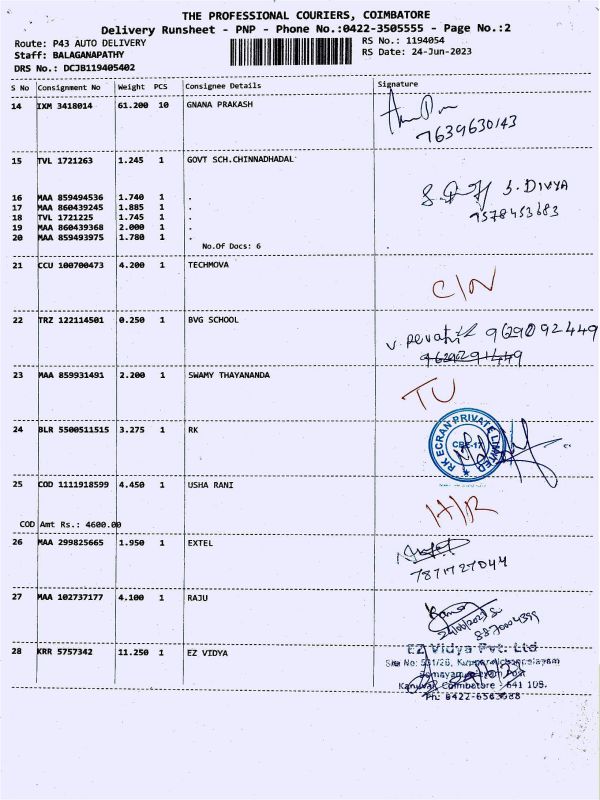 THE PROFESSIONAL COURIERS, COIMBATORE
Delivery Runsheet - PNP - Phone No.:0422-3505555 - Page No.:2
Route: P43 AUTO DELIVERY RS No.: 1194054
Staff: BALAGANAPATHY RS Date: 24-Jun-2023
DRS No.: DCJB119405402
S No Consignment No Weight PCS Consignee Details Signature
14 IXM 3418014 61.200 10 GNANA PRAKASH
7639630143
15 TVL 1721263 1.245 1 GOVT SCH.CHINNADHADAL
S. DIVYA
16 MAA 859494536 1.740 1 .
17 MAA 860439245 1.885 1 .
9578453683
18 TVL 1721225 1.745 1 .
19 MAA 860439368 2.000 1 .
20 MAA 859493975 1.780 1 .
No.Of Docs: 6
21 CCU 100700473 4.200 1 TECHMOVA
C/N
22 TRZ 122114501 0.250 1 BVG SCHOOL
9629092449
23 MAA 859931491 2.200 1 SWAMY THAYANANDA
TU
24 BLR 5500511515 3.275 1 RK
RK ECRAN PRIVATE LIMITED
25 COD 1111918599 4.450 1 USHA RANI
H/R
COD Amt Rs.: 4600.00
26 MAA 299825665 1.950 1 EXTEL
7871727044
27 MAA 102737177 4.100 1 RAJU
28 KRR 5757342 11.250 1 EZ VIDYA
EZ Vidya Pvt. Ltd
Kanuvai, Coimbatore - 641 108.
Ph: 0422-6563688